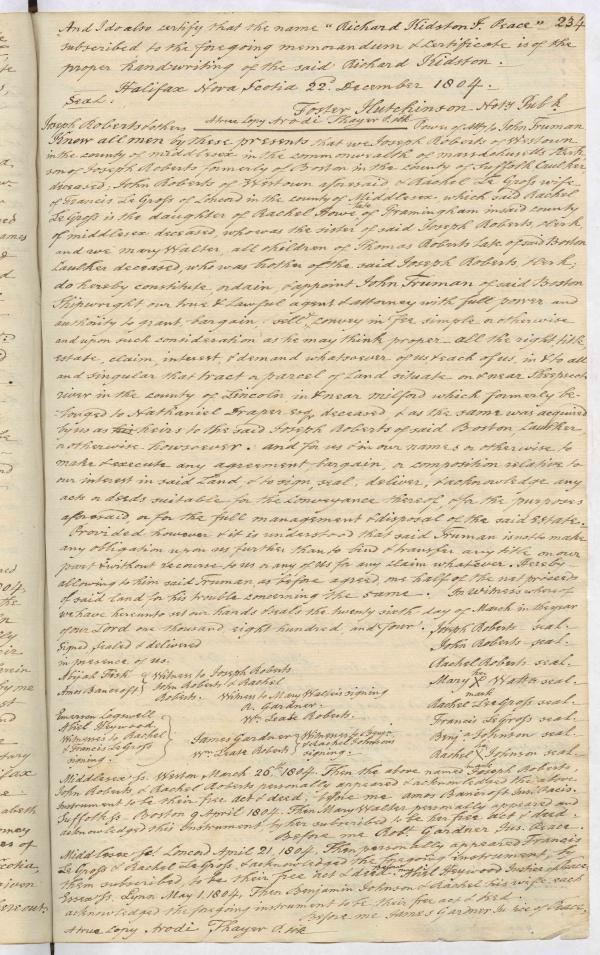 And I do also certify that the name "Richard Kidston J. Peace" 234
subscribed to the foregoing memorandum & Certificate is of the
proper handwriting of the said Richard Kidston.
Halifax Nova Scotia 22d. December 1804.
Seal. Foster Hutchinson Not'y Pub k.
A true Copy Arodi Thayer
Joseph Roberts & others Power of Atty to John Truman
Know all men by these presents that we Joseph Roberts of Westown
in the county of middlesex in the commonwealth of massachusetts Clerk,
son of Joseph Roberts formerly of Boston in the county of Suffolk Caulker
deceased; John Roberts of Westown aforesaid & Rachel Le Gross wife
of Francis Le Gross of Concord in the county of Middlesex, which said Rachel
Le Gross is the daughter of Rachel Howe late of Framingham in said county
of middlesex deceased, who was the sister of said Joseph Roberts, Clerk,
and we mary Walter, all children of Thomas Roberts late of said Boston
Caulker deceased, who was brother of the said Joseph Roberts Clerk;
do hereby constitute, ordain, & appoint John Truman of said Boston
Shipwright our true & Lawful agent & attorney with full power and
authority to grant, bargain, sell & convey in fee simple or otherwise
and upon such consideration as he may think proper all the right title
estate, claim, interest, & demand whatsoever of us & each of us, in & to all
and singular that tract or parcel of Land situate on & near Sheepscot
river in the county of Lincoln, in & near milford which formerly be-
-longed to Nathaniel Draper esq. deceased, & as the same was acquired
by us as heirs to the said Joseph Roberts of said Boston Caulker
or otherwise howsoever. and for us & in our names or otherwise to
make & execute any agreement, bargain, or composition relative to
our interest in said Land, & to sign, seal, deliver, & acknowledge any
acts or deeds suitable for the conveyance thereof, & for the purposes
aforesaid, or for the full management & disposal of the said Estate.
Provided however & it is understood that said Truman is not to make
any obligation upon us further than to bind & transfer any title on our
part & without recourse to us or any of us for any claim whatever. Hereby
allowing to him said Truman, as before agreed, one half of the net proceeds
of said land for his trouble concerning the same. In Witness whereof
we have hereunto set our hands & seals the twenty sixth day of March in the year
of our Lord one thousand, eight hundred, and four. Joseph Roberts seal.
Signed sealed & delivered John Roberts seal.
in presence of us. Rachel Roberts seal.
Abijah Fisk Witness to Joseph Roberts Mary her X mark Walter seal
Amos Bancroft John Roberts & Rachel Roberts.
Witness to Mary Walter's signing Rachel Le Gross seal
R. Gardner. Francis Le Gross seal.
Wm. Lease Roberts. Benj. Johnson seal
Abiel Heywood, Witnesses to Rachel & Francis Le Gross signing.
James Gardner Wm. Lease Roberts Witness to Benj. & Rachel Johnson's signing. Rachel mark Johnson seal
Middlesex ss. Weston March 26th. 1804. Then the above named Joseph Roberts,
John Roberts, & Rachel Roberts personally appeared & acknowledged the above
Instrument to be their free act & deed, before me Amos Bancroft Jus. Pacis.
Suffolk ss. Boston 9 April 1804. Then Mary Walter personally appeared and
acknowledged this Instrument by her subscribed to be her free act & deed.
Before me Robt. Gardner Jus. Peace.
Middlesex ss. Concord April 21, 1804. Then personally appeared Francis
Le Gross & Rachel Le Gross & acknowledged the foregoing instrument, by
them subscribed, to be their free act & deed. Abiel Heywood Justice of Peace.
Essex ss. Lynn May 1, 1804. Then Benjamin Johnson & Rachel his wife each
acknowledged the foregoing instrument to be their free act & deed.
Before me James Gardner Justice of Peace.
A true Copy Arodi Thayer